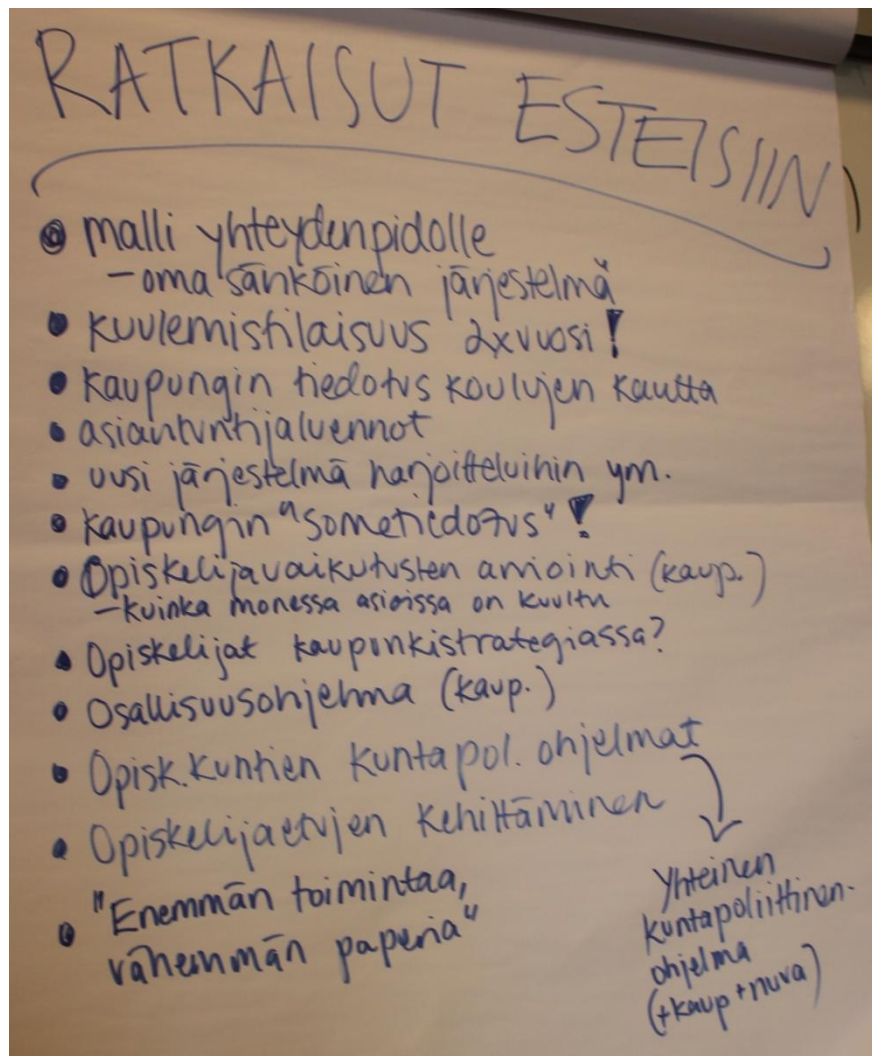 RATKAISUT ESTEISIIN
• malli yhteydenpidolle
– oma sänköinen järjestelmä
• kuulemistilaisuus 2xvuosi!
• kaupungin tiedotus koulujen kautta
• asiantuntijaluennot
• uusi järjestelmä harjoitteluihin ym.
• kaupungin "sometiedotus"!
• Opiskelijavaikutusten arviointi (kaup.)
– kuinka monessa asioissa on kuultu
• Opiskelijat kaupunkistrategiassa?
• Osallisuusohjelma (kaup.)
• Opisk.kuntien kuntapol. ohjelmat
• Opiskelijaetujen kehittäminen
• "Enemmän toimintaa,
vähemmän paperia"
Yhteinen
kuntapoliittinen-
ohjelma
(+kaup+nuva)